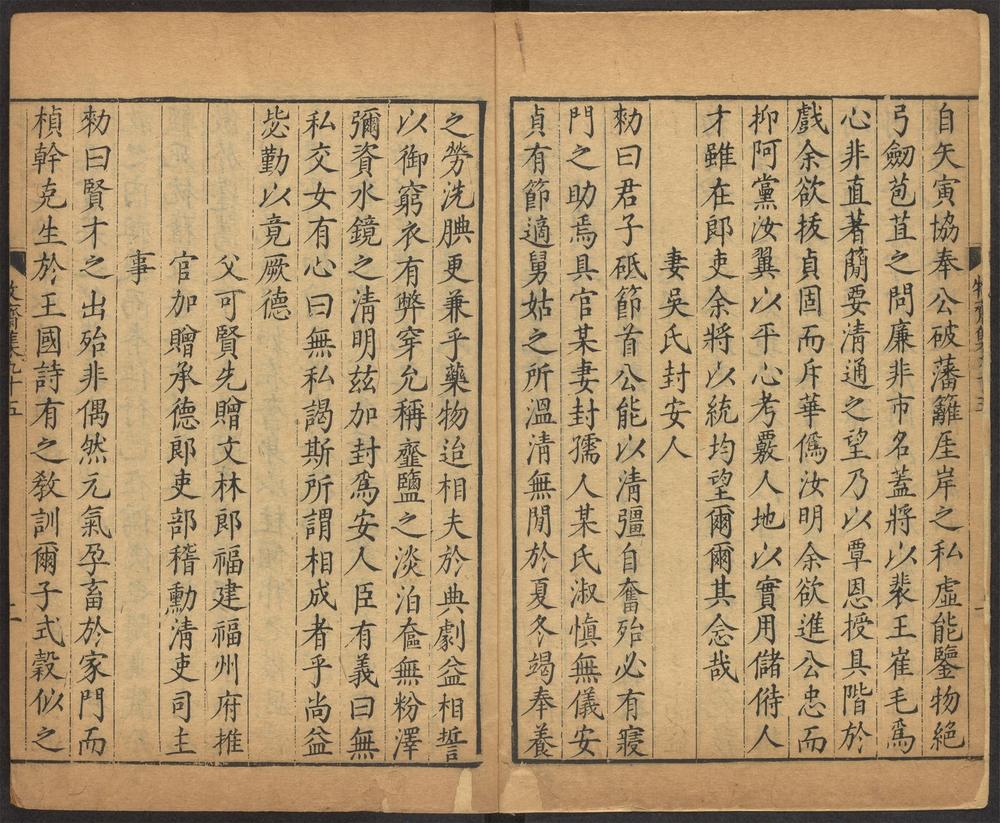 自矢寅協奉公破藩籬厓岸之私虛能鑒物絕
弓劒苞苴之問廉非市名蓋將以裴王崔毛爲
心非直著簡要淸通之望乃以覃恩授具階於
戲余欲拔貞固而斥華僞汝明余欲進公忠而
抑阿黨汝翼以平心考覈人地以實用儲偫人
才雖在郞吏余將以統均望爾爾其念哉
妻吳氏封安人
勑曰君子砥節首公能以淸彊自奮殆必有寢
門之助焉具官某妻封孺人某氏淑愼無儀安
貞有節適舅姑之所溫凊無閒於夏冬竭奉養
之勞洗腆更兼乎藥物迨相夫於典劇益相誓
以御窮衣有弊穿允稱虀鹽之淡泊奩無粉澤
彌資水鏡之淸明玆加封爲安人臣有義曰無
私交女有心曰無私謁斯所謂相成者乎尚益
毖勤以竟厥德
父可賢先贈文林郞福建福州府推
官加贈承德郞吏部稽勳淸吏司主
事
勑曰賢才之出殆非偶然元氣孕畜於家門而
楨幹克生於王國詩有之敎訓爾子式穀似之
牧齋集九十五
二